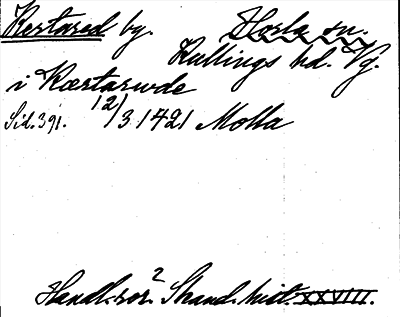 Kertared by. Horla sn.
Kullings hd. Vg.
i Kærtarwde
Sid. 391. 12/3 1421 Molla
Handl. rör. 2 Skand. hist. XXVIII.